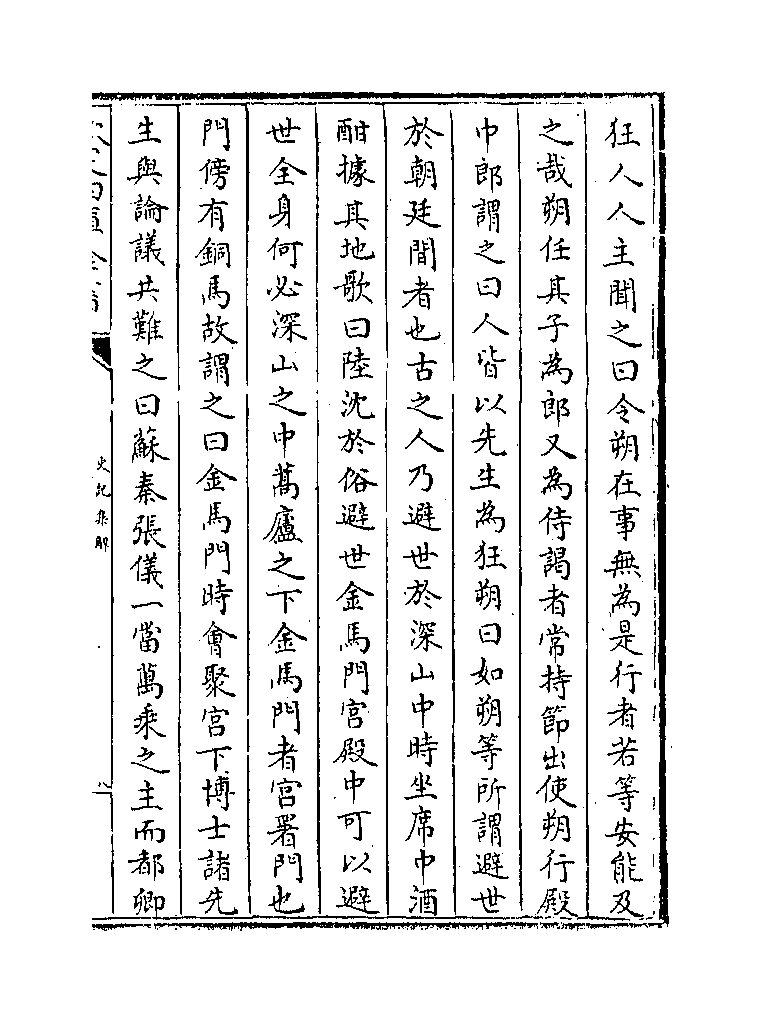 狂人人主聞之曰令朔在事無為是行者若等安能及
之哉朔任其子為郎又為侍謁者常持節出使朔行殿
中郎謂之曰人皆以先生為狂朔曰如朔等所謂避世
於朝廷間者也古之人乃避世於深山中時坐席中酒
酣據其地歌曰陸沈於俗避世金馬門宮殿中可以避
世全身何必深山之中蒿廬之下金馬門者宮署門也
門傍有銅馬故謂之曰金馬門時會聚宮下博士諸先
生與論議共難之曰蘇秦張儀一當萬乘之主而都卿
史記集解
八